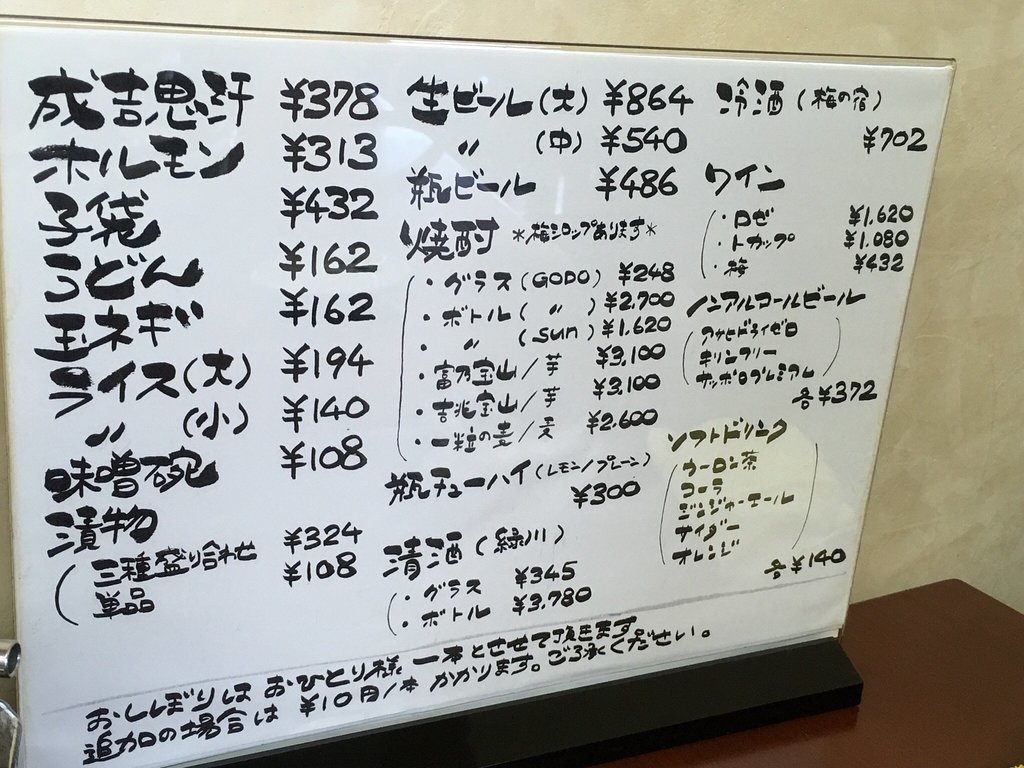 成吉思汗 ¥378
ホルモン ¥313
子袋 ¥432
うどん ¥162
玉ネギ ¥162
ライス(大) ¥194
〃 (小) ¥140
味噌碗 ¥108
漬物
三種盛り合わせ ¥324
単品 ¥108
生ビール(大) ¥864
〃 (中) ¥540
瓶ビール ¥486
焼酎 *梅シロップあります*
・グラス(GODO) ¥248
・ボトル(〃) ¥2,700
・〃 (sun) ¥1,620
・富乃宝山/芋 ¥3,100
・吉兆宝山/芋 ¥3,100
・一粒の麦/麦 ¥2,600
瓶チューハイ(レモン/プレーン)
¥300
清酒(緑川)
・グラス ¥345
・ボトル ¥3,780
冷酒(梅の宿)
¥702
ワイン
・ロゼ ¥1,620
・トカップ ¥1,080
・梅 ¥432
ノンアルコールビール
アサヒドライゼロ
キリンフリー
サッポロプレミアム
各¥372
ソフトドリンク
ウーロン茶
コーラ
ジンジャーエール
サイダー
オレンジ
各¥140
おしぼりは おひとり様 一本とさせて頂きます
追加の場合は ¥10円/本 かかります。ご了承ください。